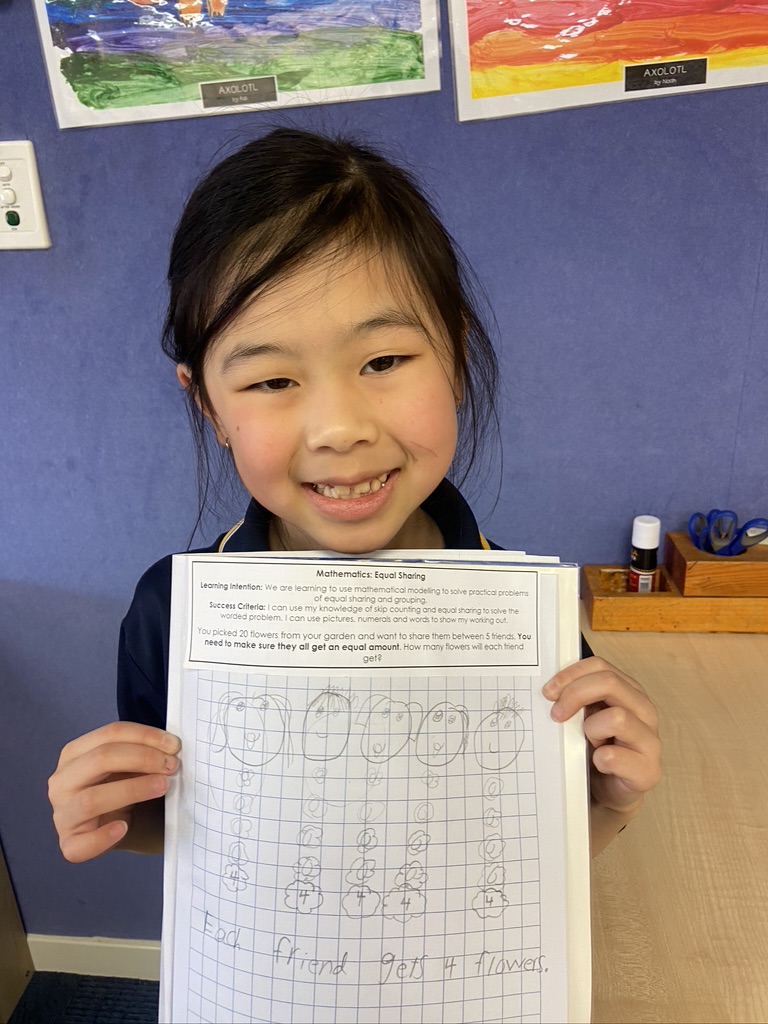 AXOLOTL
AXOLOTL
by Noah
Mathematics: Equal Sharing
Learning Intention: We are learning to use mathematical modelling to solve practical problems
of equal sharing and grouping.
Success Criteria: I can use my knowledge of skip counting and equal sharing to solve the
worded problem. I can use pictures, numerals and words to show my working out.
You picked 20 flowers from your garden and want to share them between 5 friends. You
need to make sure they all get an equal amount. How many flowers will each friend
get?
4 4 4 4 4
Each friend gets 4 flowers.